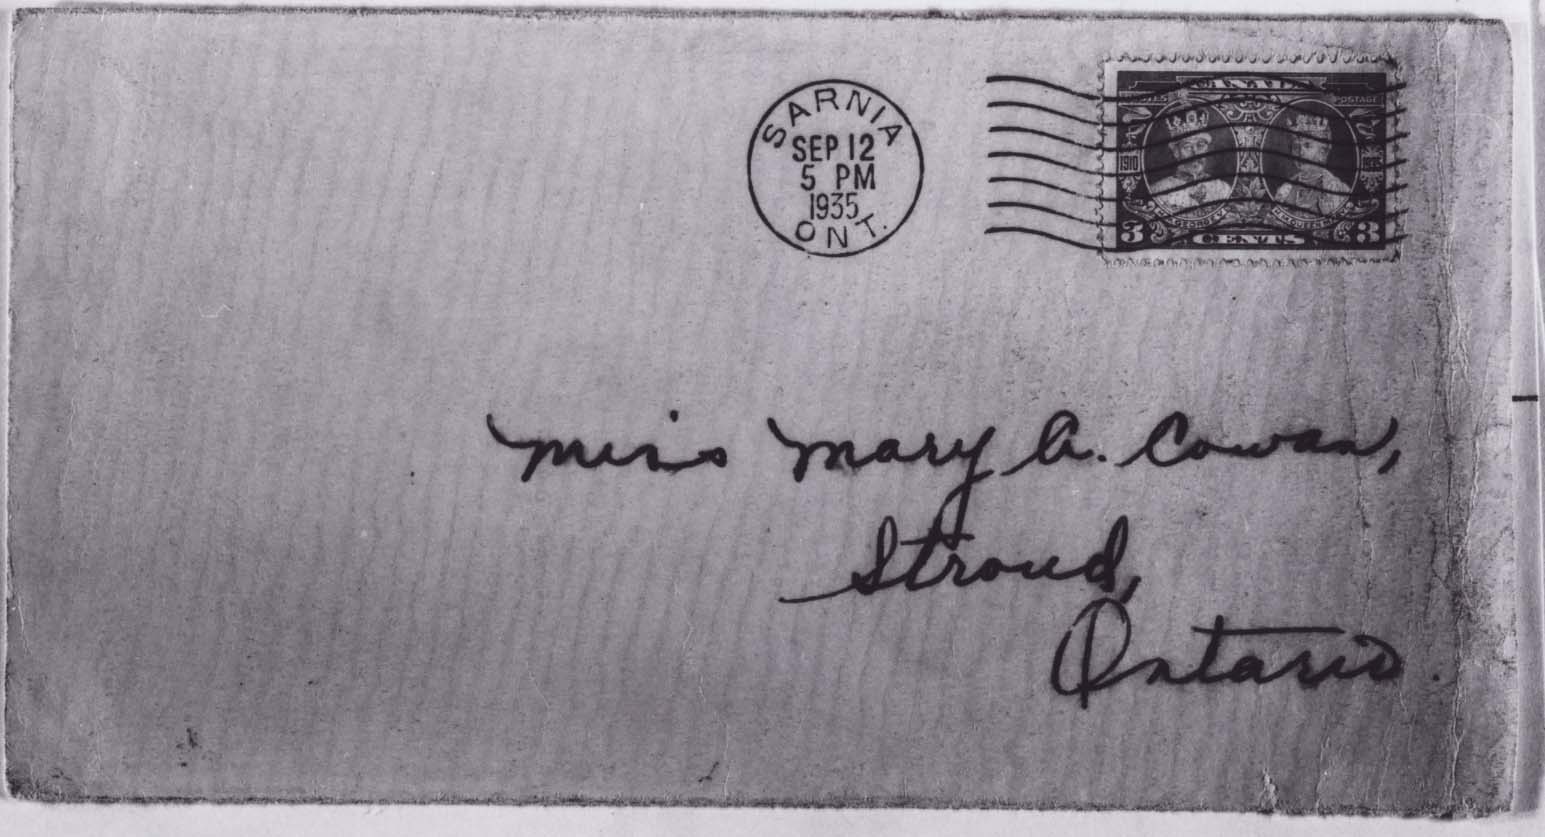 SARNIA
SEP 12
5 PM
1935
ONT.
CANADA
POSTAGE
1910 1935
3 CENTS 3
Miss Mary A. Cowan,
Stroud,
Ontario.